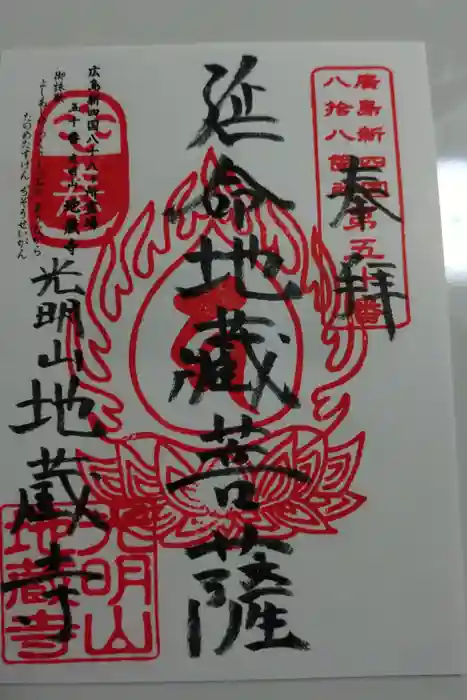 廣島新四国
八拾八箇所第五十番
奉拝
延命地蔵菩薩
広島新四国八十八ヶ所霊場
五十番 光明山 地蔵寺
御詠歌
たのめたすけん ぢぞうせいがん
光明山地蔵寺
光明山
地蔵寺